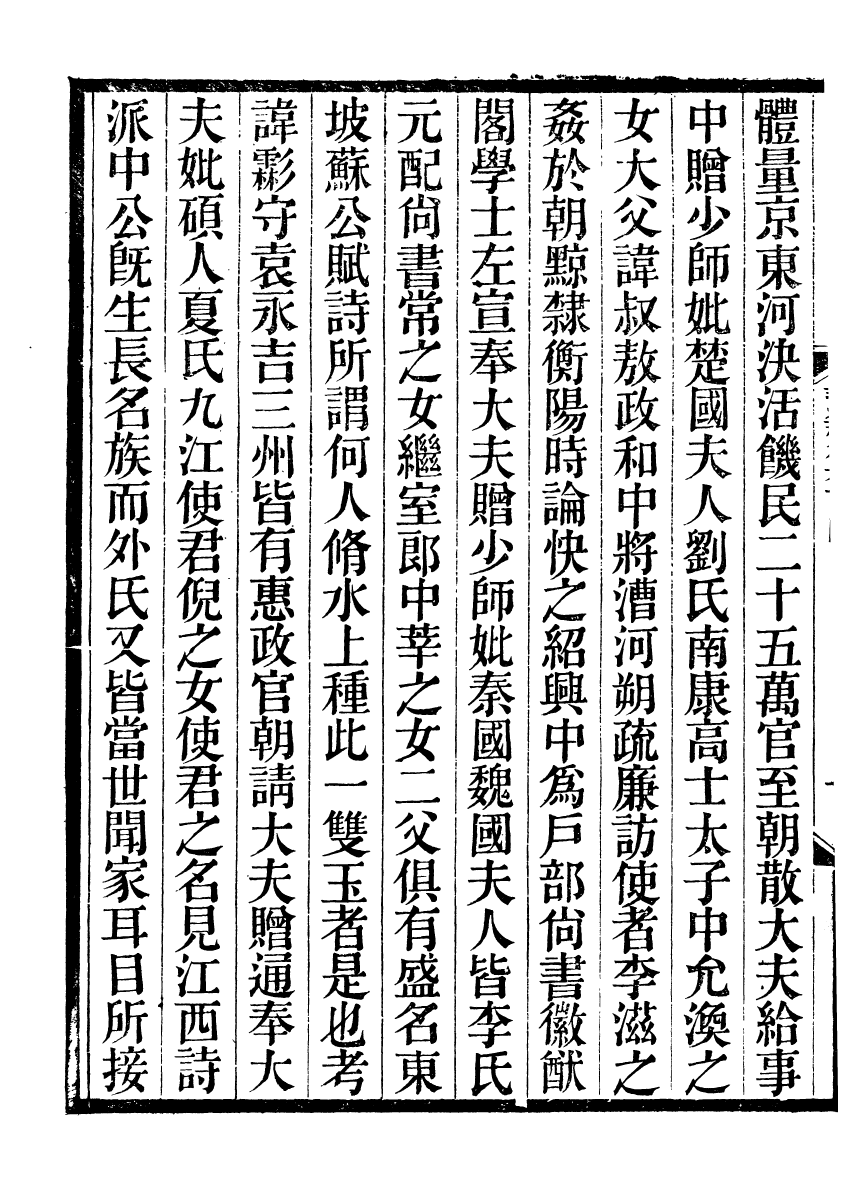 體量京東河決活饑民二十五萬官至朝散大夫給事
中贈少師妣楚國夫人劉氏南康高士太子中允渙之
女大父諱叔敖政和中將漕河朔疏廉訪使者李滋之
姦於朝黥隸衡陽時論快之紹興中爲戶部尙書徽猷
閣學士左宣奉大夫贈少師妣秦國魏國夫人皆李氏
元配尙書常之女繼室郎中莘之女二父俱有盛名東
坡蘇公賦詩所謂何人脩水上種此一雙玉者是也考
諱霦守袁永吉三州皆有惠政官朝請大夫贈通奉大
夫妣碩人夏氏九江使君倪之女使君之名見江西詩
派中公旣生長名族而外氏又皆當世聞家耳目所接